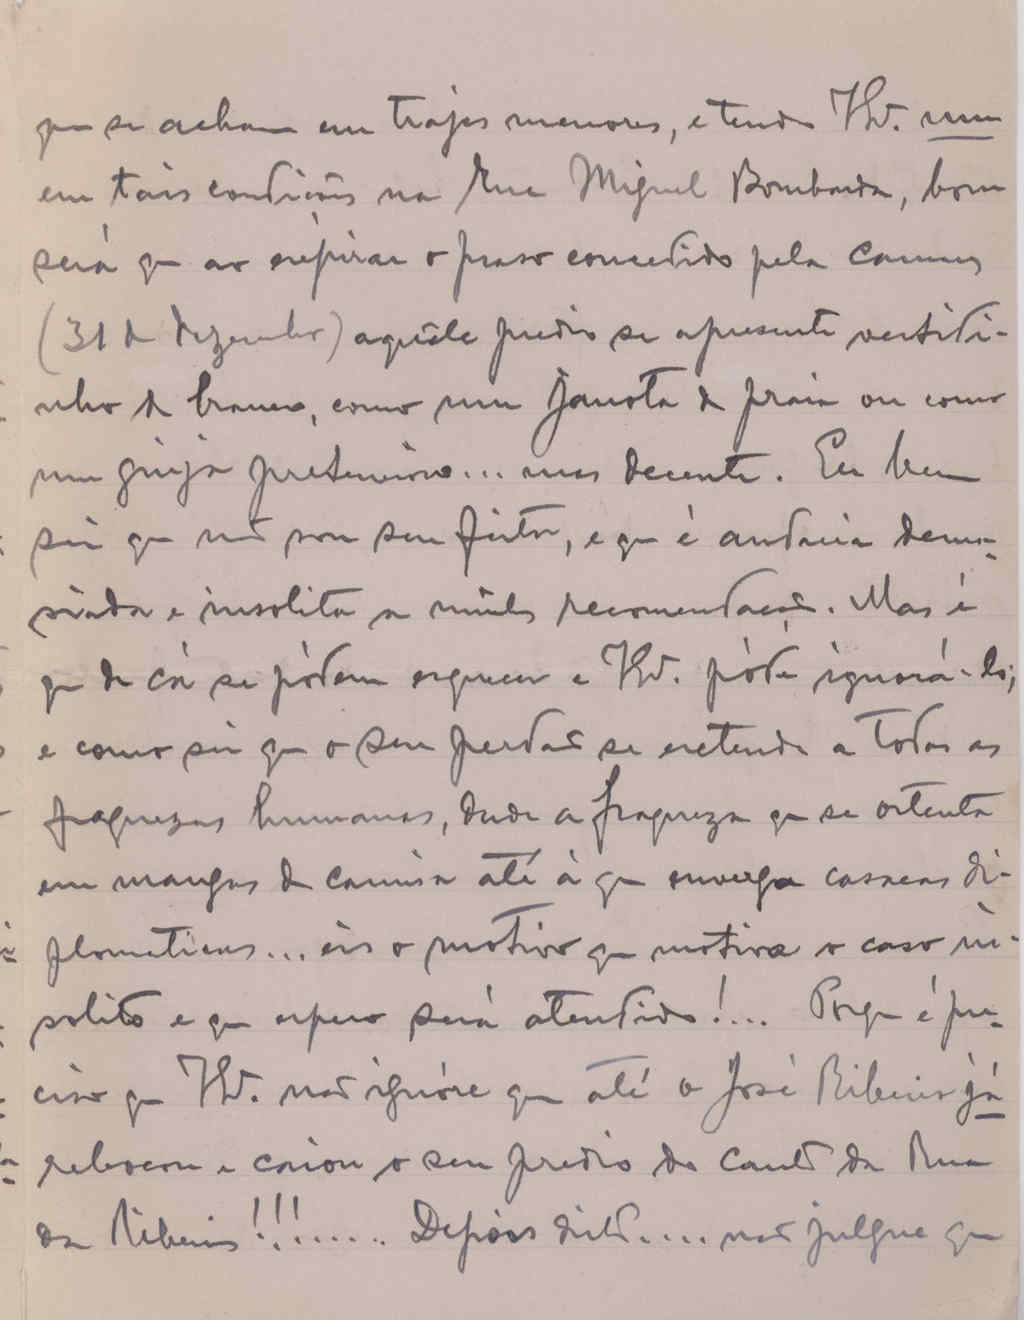 que se acham em trajes menores, e tendo V. um
em tais condições na Rua Miguel Bombarda, bom
será que ao expirar o praso concedido pela Camara
(31 de dezembro) aquêle predio se apresente vestidi-
nho de branco, como um janota de praia ou como
um ginja pretencioso... mas decente. Eu bem
sei que não sou seu feitor, e que é audacia dema-
siada e insolita a minha recomendação. Mas é
que de cá se pódem esquecer e V. póde ignorá-lo;
e como sei que o seu perdão se extende a todas as
fraquezas humanas, desde a fraqueza que se ostenta
em mangas de camisa até á que enverga casacas di-
plomaticas... eis o motivo que motiva o caso in-
solito e que espero será atendido!... Porque é pre-
ciso que V. não ignóre que até o José Ribeiro já
rebocou e caiou o seu predio do canto da Rua
da Ribeira!!!....... Depois disto.... não julgue que